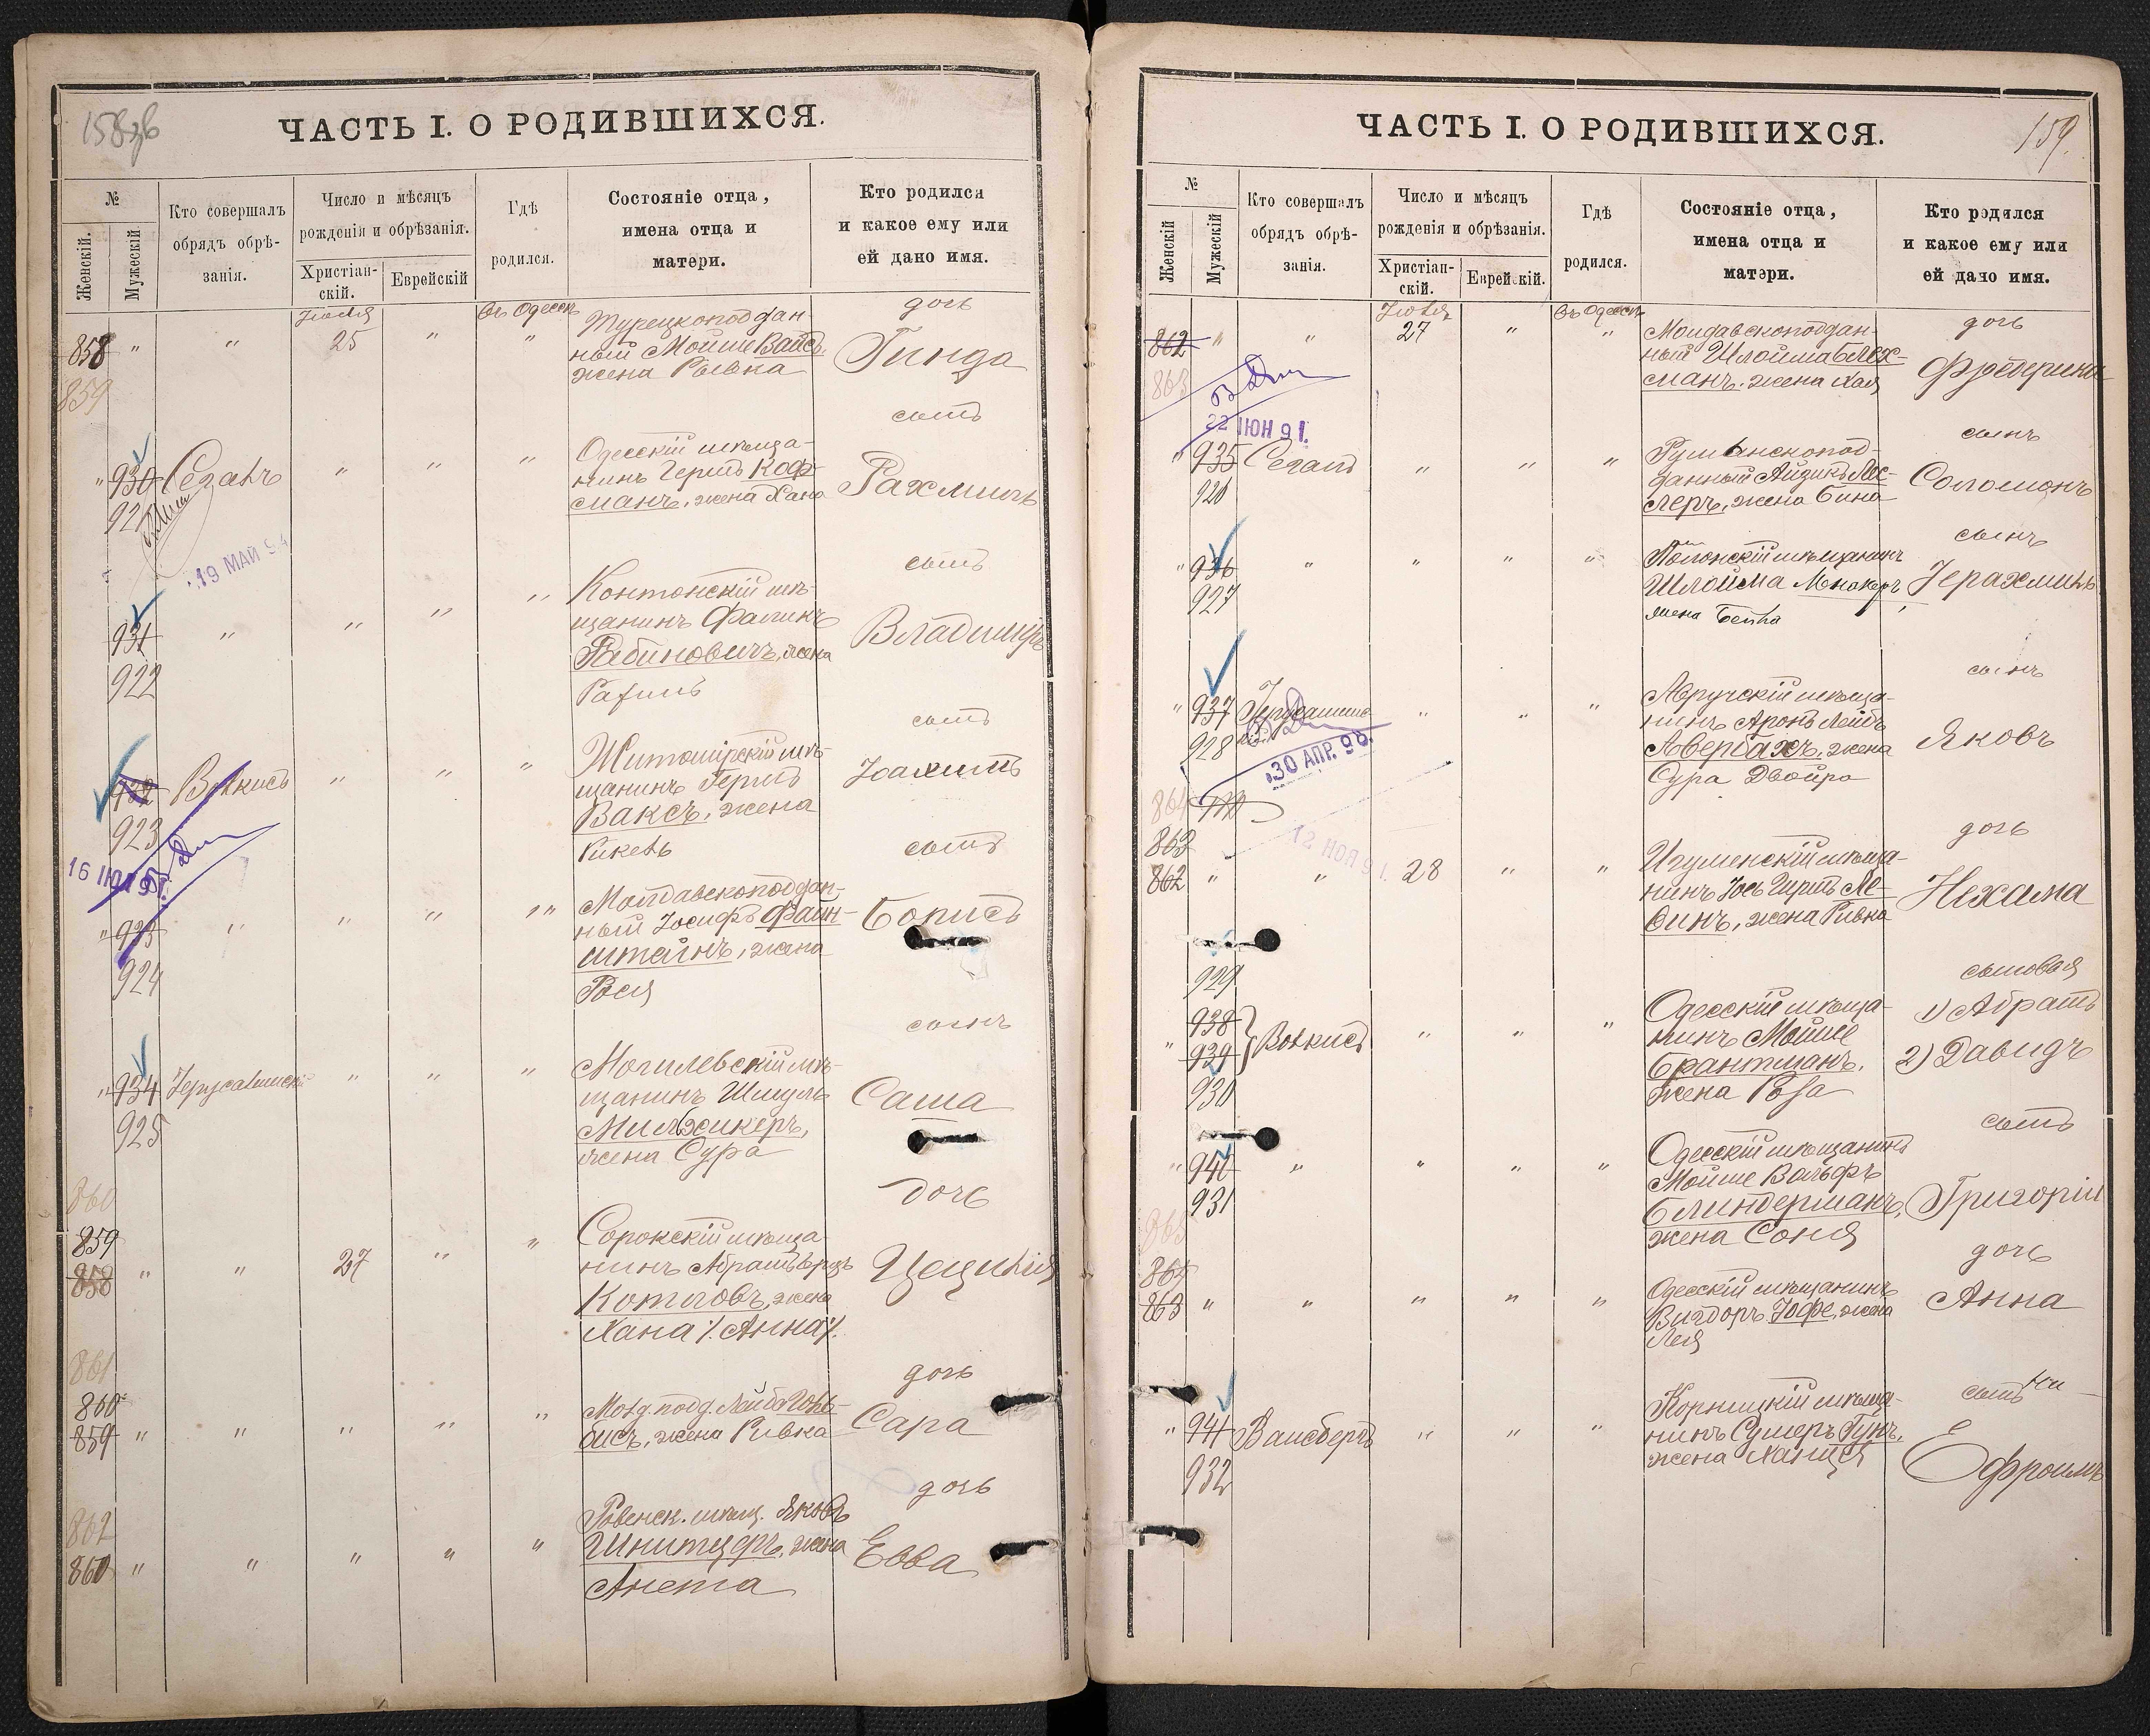 158 об
ЧАСТЬ I. О РОДИВШИХСЯ.
№
Женскій.
Мужескій
Кто совершалъ
обрядъ обрѣ-
занія.
Число и мѣсяцъ
рожденія и обрѣзанія.
Христіан-
скій.
Еврейскій
Гдѣ
родился.
Состояніе отца,
имена отца и
матери.
Кто родился
и какое ему или
ей дано имя.
858 " " Іюля 25 " въ Одессѣ "
859
Турецкоподдан-
ный Мойше Вайсъ
жена Рывка
дочь
Гинда
" 930 Сегалъ " " "
921
19 МАЙ 94
Одесскій мѣща-
нинъ Гершъ Коф-
манъ, жена Хана
сынъ
Рахмиилъ
931 " " " "
922
мѣ-
щанинъ Фаликъ
Рабиновичъ, жена
Рахиль
сынъ
Владиміръ
932 " " "
923
16 ІЮЛ 91.
Житомірскій мѣ-
щанинъ Гершъ
Ваксъ, жена
сынъ
Іоахимъ
" 933 " " " "
924
Молдавскоподдан-
ный Іосифъ Файн-
штейнъ, жена
Рося
сынъ
Борисъ
" 934 " " "
925
Могилевскій мѣ-
щанинъ Шмуль
жена Сура
сынъ
Саша
860
859
858 " " 27 " "
Сорокскій мѣща-
нинъ Абрамъ
Котляовъ, жена
Хана /Анна/.
дочь
Цецилія
861
860
859 " " " " "
Молд. подд. Лейбъ
жена Ривка
дочь
Сара
862
860 " " " " "
Ровенск. мѣщ. Яковъ
Шнитцеръ, жена
Анета
дочь
Евва
159.
ЧАСТЬ I. О РОДИВШИХСЯ.
№
Женскій
Мужескій
Кто совершалъ
обрядъ обрѣ-
занія.
Число и мѣсяцъ
рожденія и обрѣзанія.
Христіан-
скій.
Еврейскій.
Гдѣ
родился.
Состояніе отца,
имена отца и
матери.
Кто родился
и какое ему или
ей дано имя.
862 " " Іюля 27 " въ Одессѣ "
863
22 ІЮН 91.
Молдавскоподдан-
ный Шлойма Блех-
манъ, жена Хая
дочь
Фредерика
" 935 Сегалъ " " "
926
Румынскопод-
данный Айзикъ
жена Бина
сынъ
Соломонъ
" 936 " " " "
927
мѣщанинъ
Шлойма Монакеръ,
жена Бейла
сынъ
Іерахміилъ
" 937 " " "
928
30 АПР. 98.
Овручскій мѣща-
нинъ Аронъ Лейбъ
Авербахъ, жена
Сура Двойра
сынъ
Яковъ
864
863
862 " " 28 " "
12 НОЯ 91.
Игуменскій мѣща-
нинъ Іось Гиршъ Ле-
винъ, жена Ривка
дочь
Нехама
929
938
" 939 " " "
930
Одесскій мѣща-
нинъ Мойше
Брантманъ,
жена Роза
сыновья
1) Абрамъ
2) Давидъ
" 940 " " " "
931
Одесскій мѣщанинъ
Мойше Вольфъ
Блиндерманъ,
жена Соня
сынъ
Григорій
865
864
863 " " " " "
Одесскій мѣщанинъ
Вигдоръ Іофе, жена
Лея
дочь
Анна
" 941 Вайсбергъ " " "
932
Корницкій мѣща-
нинъ Сумеръ Гунъ,
жена
сынъ
Ефроимъ